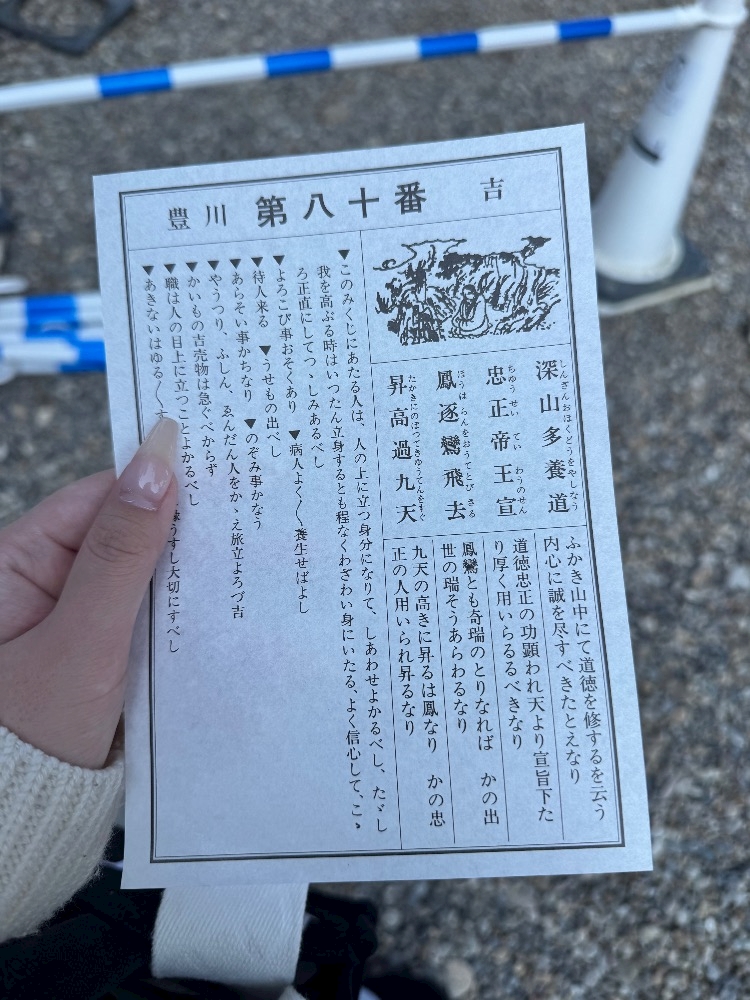 豊川 第八十番 吉
しんざんおほくどうをやしなう
深山多養道
ちゆうせいていわうのせん
忠正帝王宣
ほうはらんをおうてとびさる
鳳逐鸞飛去
たかきにのぼつてきゆうてんをすぐ
昇高過九天
ふかき山中にて道徳を修するを云う
内心に誠を尽すべきたとえなり
道徳忠正の功顕われ天より宣旨下た
り厚く用いらるるべきなり
鳳鸞とも奇瑞のとりなれば かの出
世の瑞そうあらわるなり
九天の高きに昇るは鳳なり かの忠
正の人用いられ昇るなり
▼このみくじにあたる人は、人の上に立つ身分になりて、しあわせよかるべし、たゞし
我を高ぶる時はいつたん立身するとも程なくわざわい身にいたる、よく信心して、こゝ
ろ正直にしてつゝしみあるべし
▼よろこび事おそくあり ▼病人よく〱養生せばよし
▼待人来る ▼うせもの出べし
▼あらそい事かちなり ▼のぞみ事かなう
▼やうつり、ふしん、ゑんだん人をかゝえ旅立よろづ吉
▼かいもの吉売物は急ぐべからず
▼職は人の目上に立つことよかるべし
▼あきないはゆる〱す うすし大切にすべし